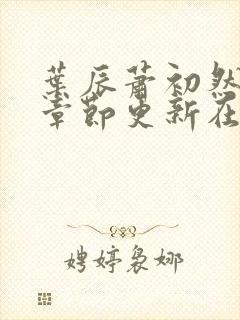 葉辰蕭初然
章節更新在
娉婷裊娜